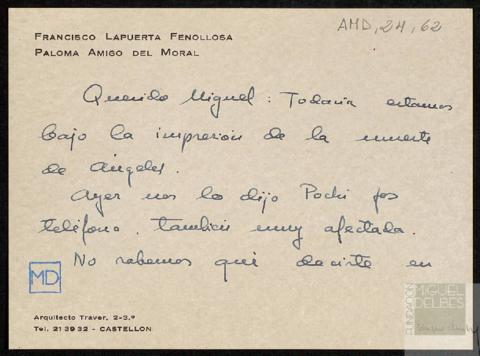 FRANCISCO LAPUERTA FENOLLOSA
PALOMA AMIGO DEL MORAL
AMD, 24, 62
Querido Miguel: Todavía estamos
bajo la impresión de la muerte
de Ángeles.
Ayer nos lo dijo Pochi por
teléfono, también muy afectada.
No sabemos qué decirte en
MD
Arquitecto Traver, 2-3.º
Tel. 213932 - CASTELLON
FUNDACIÓN
MIGUEL
DELIBES